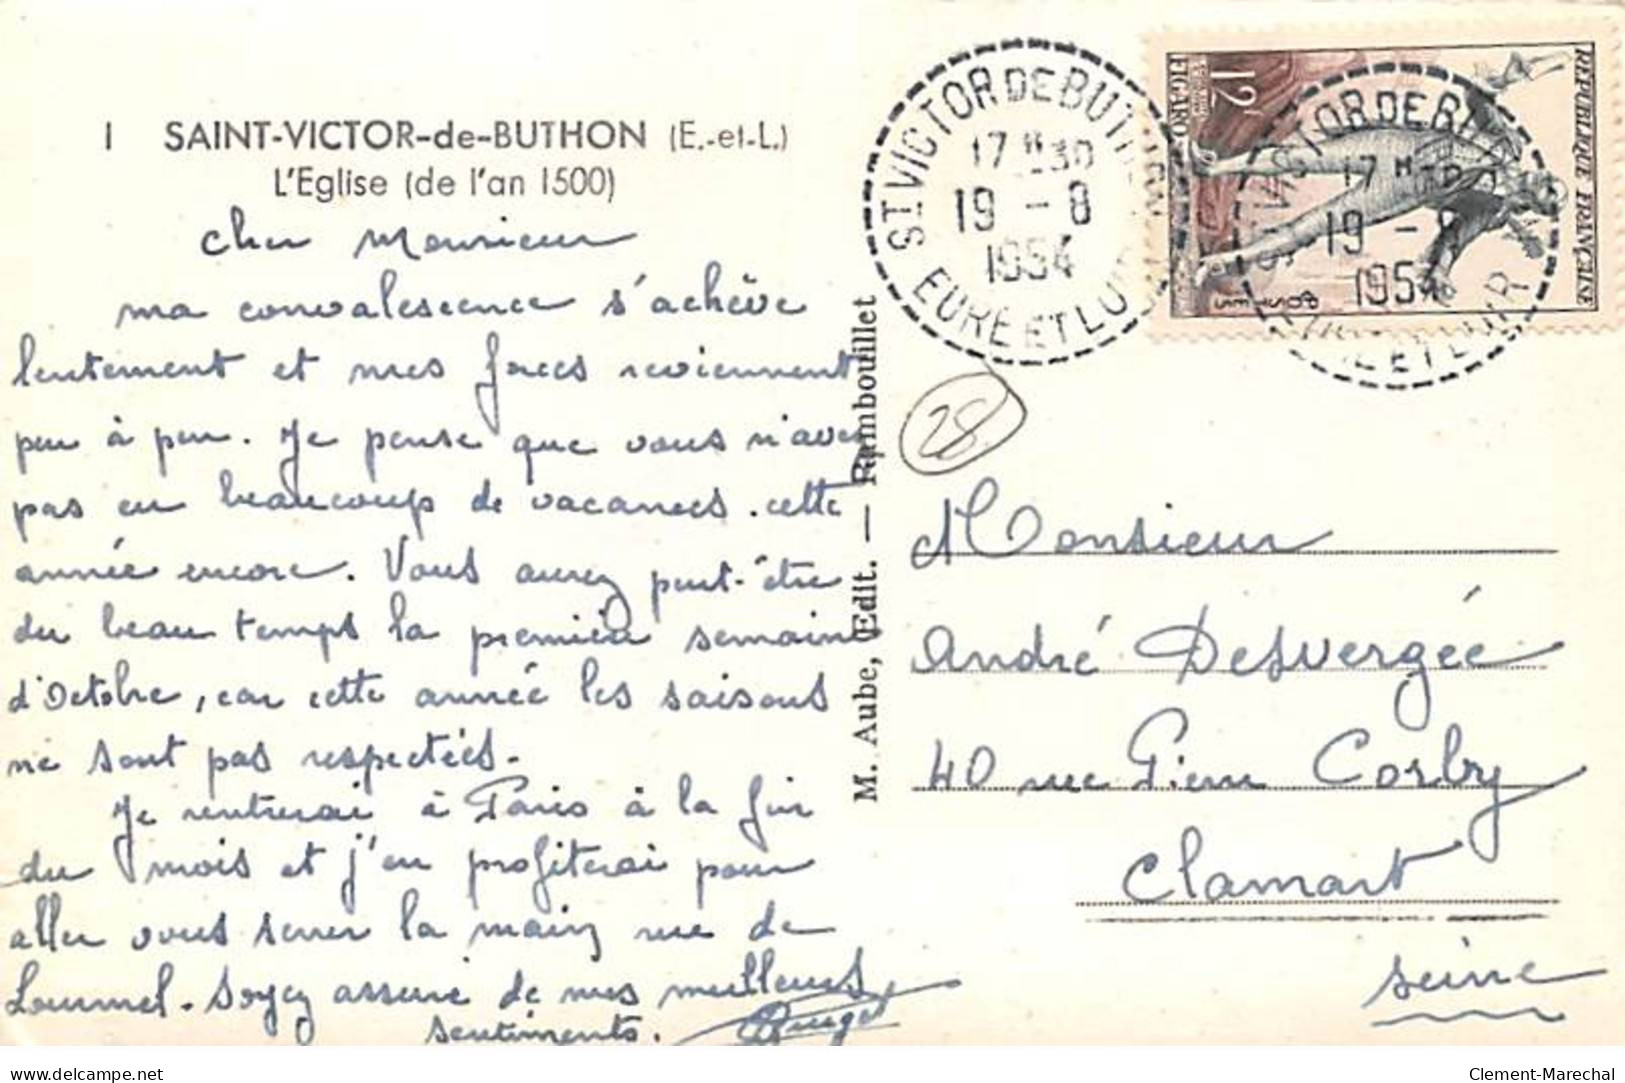 1 SAINT-VICTOR-de-BUTHON (E.-et-L.)
L'Eglise (de l'an 1500)
cher Monsieur
ma convalescence s'achève
lentement et mes forces reviennent
peu à peu. Je pense que vous n'avez
pas eu beaucoup de vacances. cette
année encore. Vous aurez peut-être
du beau temps la première semaine
d'Octobre, car cette année les saisons
ne sont pas respectées.
Je rentrerai à Paris à la fin
du mois et j'en profiterai pour
aller vous serrer la main rue de
Lourmel. Soyez assuré de mes meilleurs
sentiments.
M. Aube, Edit. — Rambouillet
ST VICTOR DE BUTHON
17 H 30
19 - 8
1954
EURE ET LOIR
REPUBLIQUE FRANÇAISE
12F
FIGARO
17 H 30
19 - 8
1954
28
Monsieur
André Desvergée
40 rue Pierre Corby
Clamart
Seine
delcampe.net
Clement-Marechal